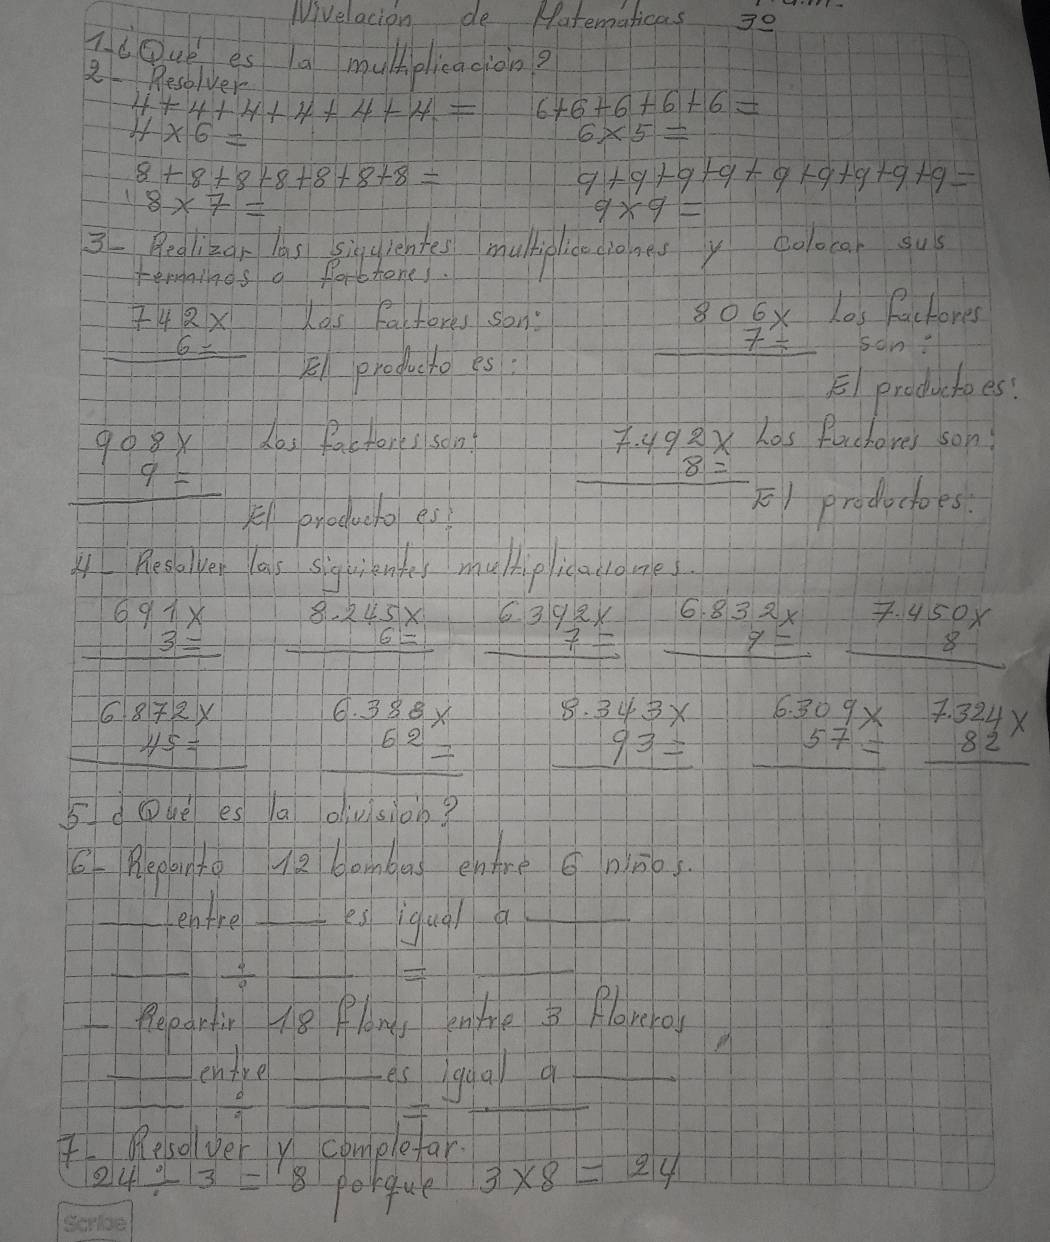 Nivelación de Matematicas 3º
1-¿Qué es la multiplicación?
2- Resolver
4+4+4+4+4+4= 6+6+6+6+6=
4x6= 6x5=
8+8+8+8+8+8+8= 9+9+9+9+9+9+9+9+9=
8x7= 9x9=
3- Realizar las siguientes multiplicaciones y colocar sus
terminos o factores.
742x Los factores son: 806x Los factores
6= 7= son:
El producto es:
El producto es:
908x Los factores son: 7.492x Los factores son:
9= 8=
El producto es: El producto es:
4- Resolver las siguientes multiplicaciones.
691x 8.245x 6392x 6.832x 7.450x
3= 6= 7= 9= 8
6872x 6.388x 8.343x 6.309x 7.324x
45= 62= 93= 57= 82
5-¿Qué es la división?
6- Reparto 12 bombas entre 6 niños.
____entre____es igual a____
____ ÷ ____ = ____
- Repartir 18 flores entre 3 floreros
____entre____es igual a____
____ ÷ ____ = ____
7- Resolver y completar.
24÷3=8 porque 3x8=24
Scribe